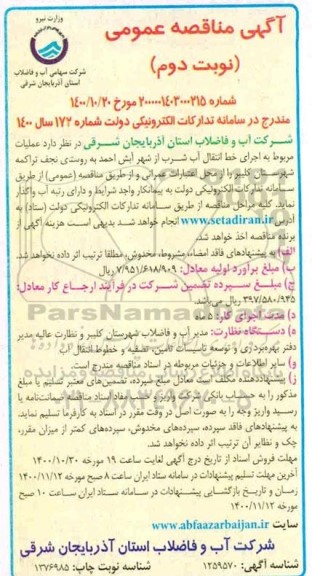 وزارت نیرو
شرکت سهامی آب و فاضلاب
استان آذربایجان شرقی
آگهی مناقصه عمومی
(نوبت دوم)
شماره ۲۰۰۰۰۰۱۴۰۳۰۰۰۲۱۵ مورخ ۱۴۰۰/۱۰/۲۰
مندرج در سامانه تدارکات الکترونیکی دولت شماره ۱۷۲ سال ۱۴۰۰
شرکت آب و فاضلاب استان آذربایجان شرقی در نظر دارد عملیات
مربوط به اجرای خط انتقال آب شرب از شهر آبش احمد به روستای نجف تراکمه
شهرستان کلیبر را از محل اعتبارات عمرانی و از طریق مناقصه (عمومی) از طریق
سامانه تدارکات الکترونیکی دولت به پیمانکار واجد شرایط و دارای رتبه آب واگذار
نماید. کلیه مراحل مناقصه از طریق سامانه تدارکات الکترونیکی دولت (ستاد) به
آدرس www.setadiran.ir انجام خواهد شد بدیهی است هزینه آگهی از
برنده مناقصه اخذ خواهد شد.
الف) به پیشنهادهای فاقد امضاء، مشروط، مخدوش، مطلقا ترتیب اثر داده نخواهد شد.
ب) مبلغ برآورد اولیه معادل: ۷/۹۵۱/۶۱۸/۹۰۹ ریال
ج) مبلغ سپرده تضمین شرکت در فرآیند ارجاع کار معادل:
۳۹۷/۵۸۰/۹۴۵ ریال می‌باشد.
د) مدت اجرای کار: ۵ ماه
ه) دستگاه نظارت: مدیر آب و فاضلاب شهرستان کلیبر و نظارت عالیه مدیر
دفتر بهره‌برداری و توسعه تاسیسات تامین، تصفیه و خطوط انتقال آب
و) سایر اطلاعات و جزئیات مربوطه در اسناد مناقصه مندرج است
ز) پیشنهاددهنده مکلف است معادل مبلغ سپرده، تضمین‌های معتبر تسلیم یا مبلغ
مذکور را به حساب بانکی شرکت واریز و حسب مفاد اسناد مناقصه ضمانت‌نامه یا
رسید واریز وجه را به صورت اصل در وقت مقرر در اسناد به کارفرما تسلیم نماید.
به پیشنهادهای فاقد سپرده، سپرده‌های مخدوش، سپرده‌های کمتر از میزان مقرر،
چک و نظایر آن ترتیب اثر داده نخواهد شد.
مهلت فروش اسناد از تاریخ درج آگهی لغایت ساعت ۱۹ مورخه ۱۴۰۰/۱۰/۳۰
آخرین مهلت تسلیم پیشنهادات در سامانه ستاد ایران ساعت ۸ صبح مورخه ۱۴۰۰/۱۱/۱۲
زمان و تاریخ بازگشایی پیشنهادات در سامانه ستاد ایران ساعت ۱۰ صبح
مورخه ۱۴۰۰/۱۱/۱۲
سایت www.abfaazarbaijan.ir
شرکت آب و فاضلاب استان آذربایجان شرقی
شناسه آگهی: ۱۲۵۹۵۷۰ شناسه نوبت چاپ: ۱۳۷۶۹۸۵